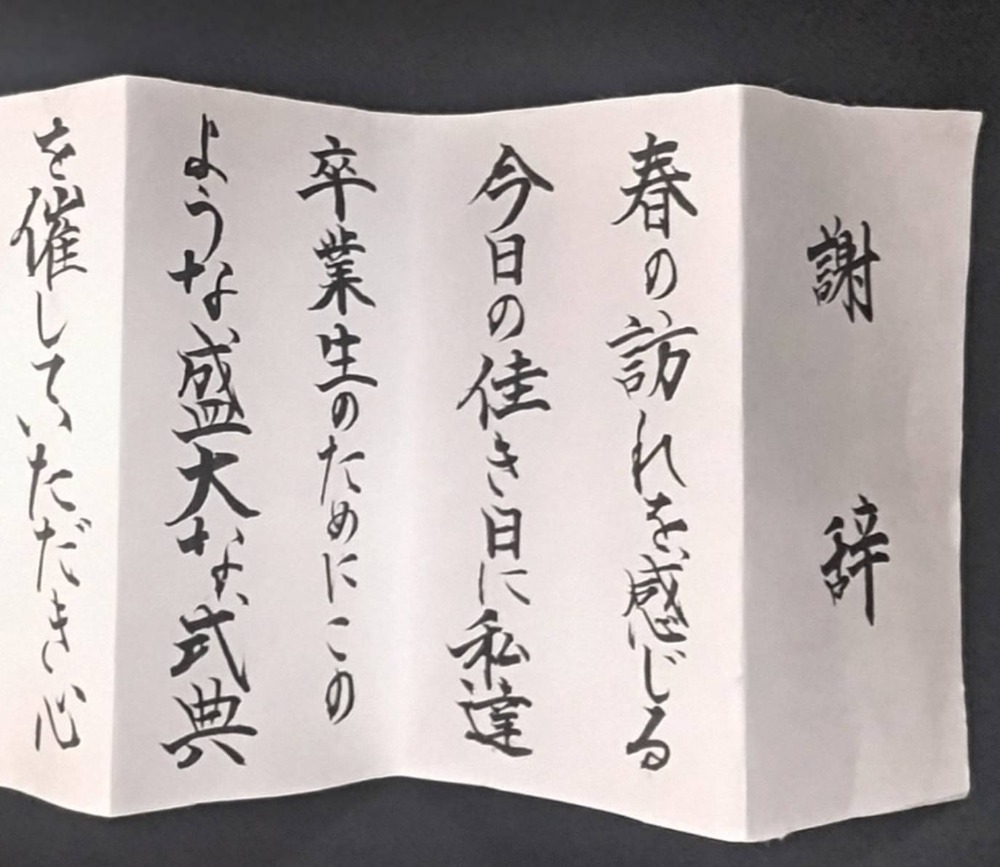 謝辞
春の訪れを感じる
今日の佳き日に私達
卒業生のためにこの
ような盛大な式典
を催していただき心